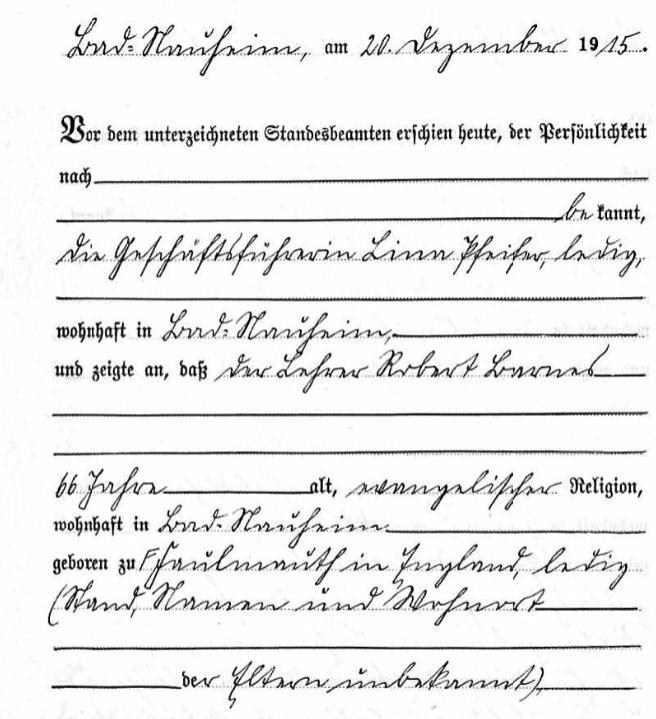 Bad-Nauheim, am 20. Dezember 1915.
Vor dem unterzeichneten Standesbeamten erschien heute, der Persönlichkeit
nach
be kannt,
die Geschäftsführerin Lina Pfeifer, ledig,
wohnhaft in Bad-Nauheim,
und zeigte an, daß der Lehrer Robert Barnes
66 Jahre alt, evangelischer Religion,
wohnhaft in Bad-Nauheim
geboren zu Faulmauth in England, ledig
(Stand, Namen und Wohnort
der Eltern unbekannt)